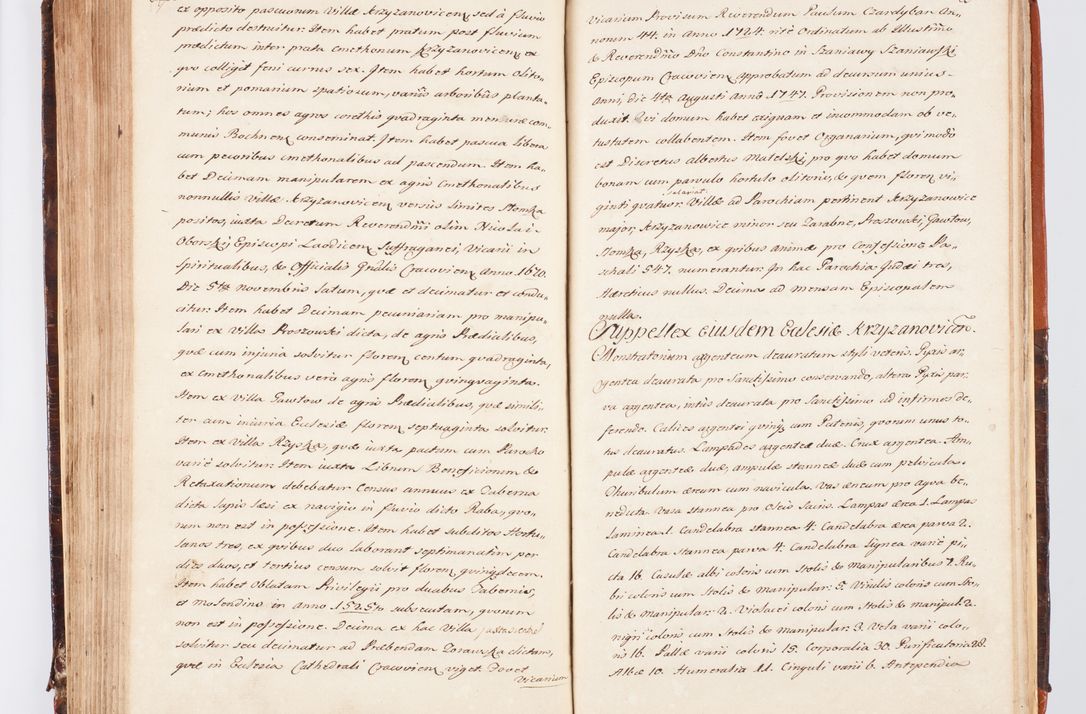 ex opposito pascuorum Villæ Krzyzanovicen̨ sed à fluvio
prædicto destruitur. Item habet pratum post fluvium
prædictum inter prata Cmethonum Krzyzanovicen̨ ex
qvo colligit feni currus sex. Item habet hortum olito-
rium et pomarium spatiosum, variis arboribus planta-
tum; hos omnes agros corethis qvadraginta mensuræ com-
munis Bochnen̨ conseminat. Item habet pascua libera
cum pecoribus cmethonalibus ad pascendum. Item ha-
bet Decimam manipularem ex agris Cmethonalibus
nonnullis Villæ Krzyzanovicen̨ versus limites Stomka
positos, iuxta Decretum Reverendmi olim Nicolai
Oborski Episcopi Laodicen̨ Suffraganei, Vicarii in
Spiritualibus, & Officialis Gnalis Cracovien̨ Anno 1670.
Die 5ta novembris latum, qvæ et decimatur et condu-
citur. Item habet Decimam pecuniariam pro manipu-
lari ex Villa Proszowski dicta, de agris Prædialibus,
qvæ cum injuria solvitur floren̨ centum qvadraginta,
ex Cmethonalibus vero agris floren̨ qvinqvaginta.
Item ex Villa Gawtow de agris Prædialibus, qvæ simili-
ter cum iniuria Ecclesiæ floren̨ septuaginta solvitur.
Item ex Villa Rzyska, qvæ iuxta pactum cum Parocho
variè solvitur. Item iuxta Librum Beneficiorum &
Retaxationum debebatur Census annuus ex Taberna
dicta lapis læsi ex navigio in fluvio dicto Raba, qvo-
rum non est in possessione. Item habet subditos Hortu-
lanos tres, ex qvibus duo laborant septimanatim per
dies duos, et tertius censum solvit floren̨ qvingdecem.
Item habet Oblatam Privilegii pro duabus Tabernis,
et molendino in Anno 1525to subsecutam, qvorum
non est in possessione. Decima ex hac Villa
solvitur seu decimatur ad Præbendam Zorawska dictam,
qvæ in Ecclesia Cathedrali Cracovien̨ viget. Fovet
Vicarium
Vicarium Provisum Reverendum Paulum Czardyban An-
norum 44. in Anno 1724. ritè Ordinatum ab Illustrmo
& Reverendmo Dno Constantino in Szaniawy Szaniawski
Episcopum Cracovien̨ approbatum ad decursum unius
Anni, die 4ta Augusti Anno 1747. Provisionem non pro-
duxit. Qvi domum habet exignam et incommodam ob ve-
tustatem collabentem. Item fovet Organarium, qvi modo
est Discretus Albertus Matelski, pro qvo habet domum
bonam cum parvulo hortulo olitorio, & qvem floren̨ vi-
ginti qvatuor salariat. Villæ ad Parochiam pertinent Krzyzanowice
major, Krzyzanowice minor seu Zarabne, Proszowski, Gawtow,
Stomka, Rzyska, ex qvibus animæ pro Confessione Pa-
schali 547. numerantur. In hac Parochia Judæi tres,
Hæreticus nullus. Decima ad mensam Episcopalem
nulla.
Suppellex eiusdem Ecclesiæ Krzyzanovicen̄.
Monstratorium argenteum deauratum styli veteris. Pyxis ar-
gentea deaurata pro Sanctissimo conservando, altera Pyxis par-
va argentea, intùs deaurata pro Sanctissimo ad infirmos de-
ferendo. Calices argentei qvinq cum Patenis, qvorum unus to-
tus deauratus. Lampades argenteæ duæ. Crux argentea. Am-
pulæ argenteæ duæ, ampulæ stanneæ duæ cum pelvicula.
Thuribulum æreum cum navicula. Vas æneum pro aqva be-
nedicta. Vasa stannea pro Oleis Sacris. Lampas ærea 1. Lampas
laminea 1. Candelabra stannea 4. Candelabra ærea parva 2.
Candelabra stannea parva 4. Candelabra lignea variè pi-
cta 16. Casulæ albi coloris cum Stolis & manipularibus 7. Ru-
bri coloris cum Stolis & manipular: 5. Viridis coloris cum Sto-
lis & manipular: 2. Violacei coloris cum Stolis & manipul: 2.
nigri coloris cum Stolis & manipular: 3. Vela varii colo-
ris 16. Pallæ varii coloris 15. Corporalia 30. Purificatoria 28.
Albæ 10. Humeralia 11. Cinguli varii 6. Antependia